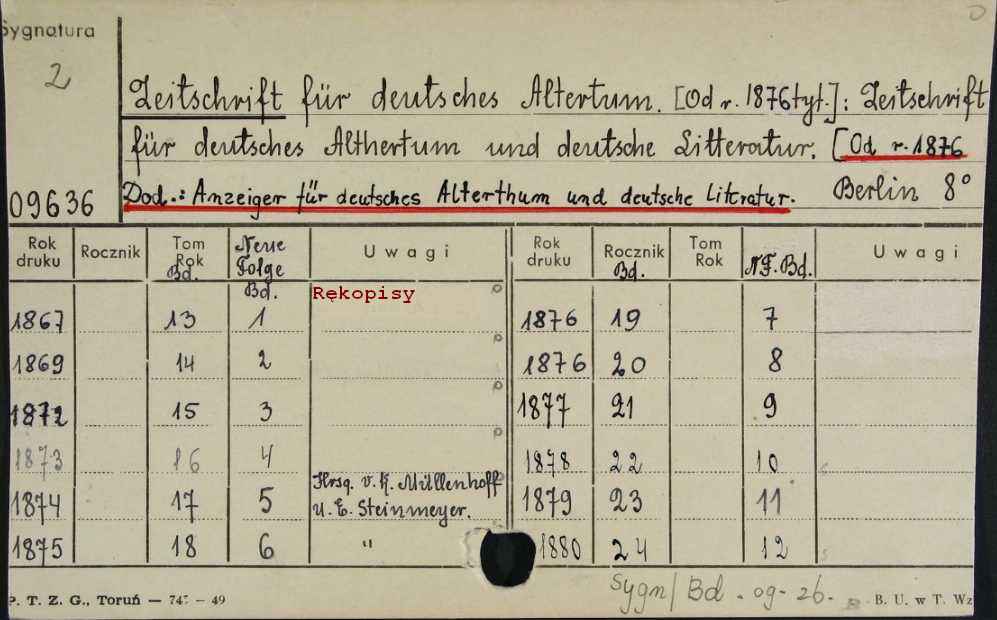 Sygnatura
2
Zeitschrift für deutsches Altertum. [Od r. 1876 tyt.]: Zeitschrift
für deutsches Althertum und deutsche Litteratur. [Od r. 1876
09636 Dod.: Anzeiger für deutsches Alterthum und deutsche Literatur. Berlin 8°
Rok druku Rocznik Tom Rok Bd. Neue Folge Bd. Uwagi Rok druku Rocznik Bd. Tom Rok N.F. Bd. Uwagi
Rękopisy
1867 13 1 1876 19 7
1869 14 2 1876 20 8
1872 15 3 1877 21 9
1873 16 4 1878 22 10
1874 17 5 Hrsg. v. K. Müllenhoff u. E. Steinmeyer. 1879 23 11
1875 18 6 " 1880 24 12
Sygn/ Bd. 09-26.
P. T. Z. G., Toruń — 747 — 49 B. U. w T. Wz